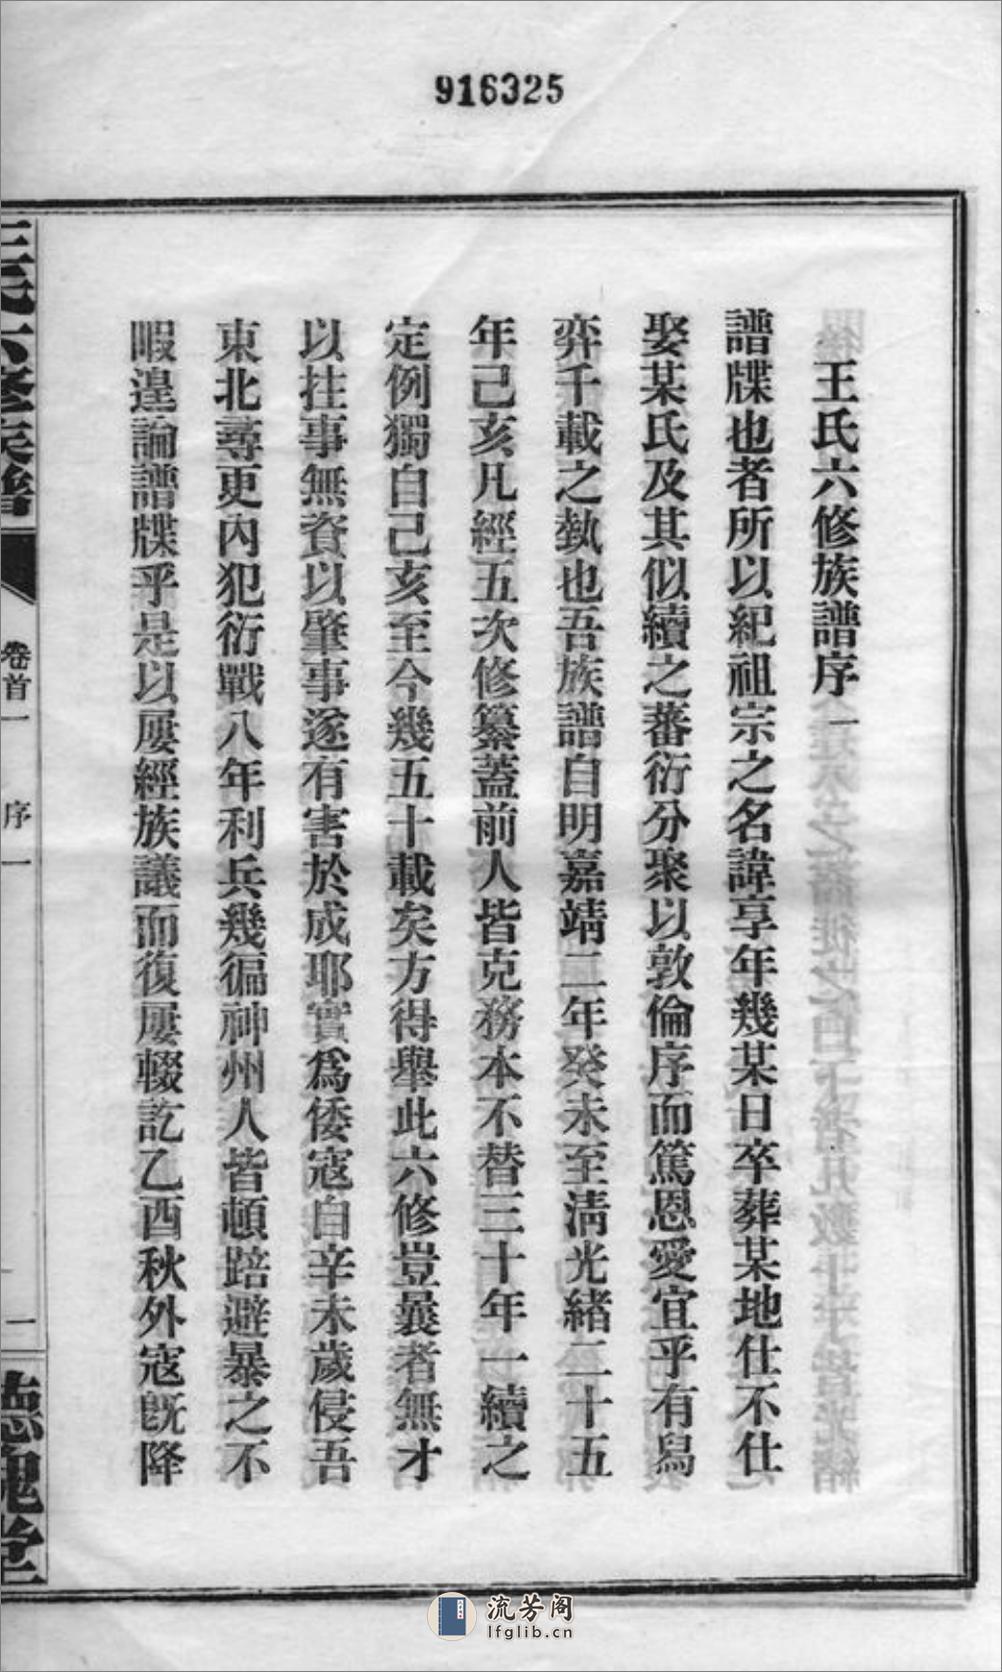 916325
王氏六修族譜序一
譜牒也者所以紀祖宗之名諱享年幾某日卒葬某地仕不仕
娶某氏及其似續之蕃衍分聚以敦倫序而篤恩愛宜乎有舄
弈千載之埶也吾族譜自明嘉靖二年癸未至淸光緒二十五
年己亥凡經五次修纂蓋前人皆克務本不替三十年一續之
定例獨自己亥至今幾五十載矣方得舉此六修豈曩者無才
以拄事無資以肇事遂有害於成耶實爲倭寇自辛未歲侵吾
東北尋更內犯衍戰八年利兵幾徧神州人皆頓踣避暴之不
暇遑論譜牒乎是以屢經族議而復屢輟訖乙酉秋外寇旣降
王氏六修族譜
卷首一
序一
一
德槐堂
流芳阁
lfglib.cn